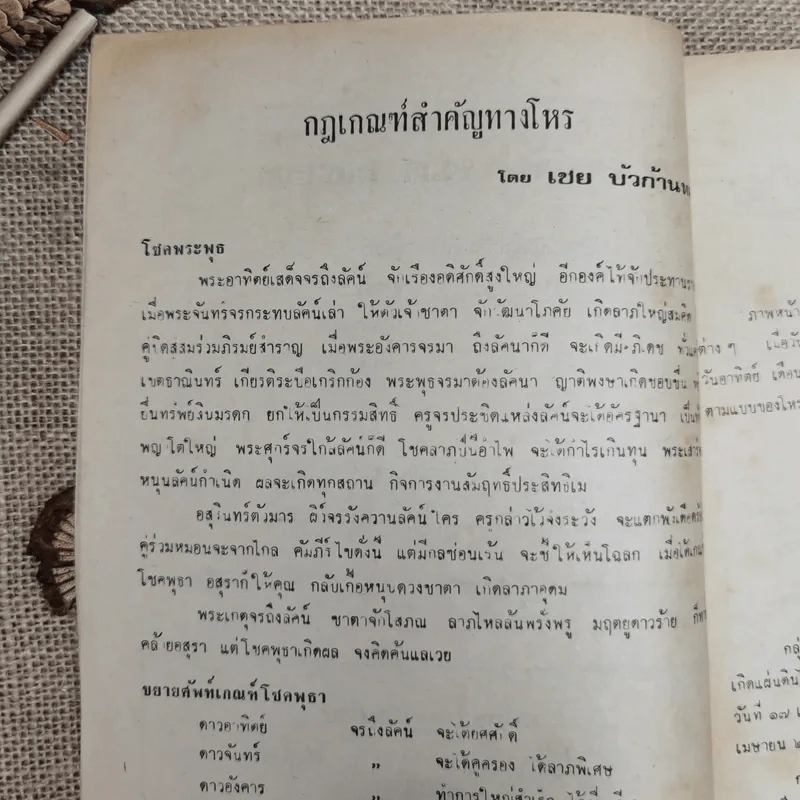 กฎเกณฑ์สำคัญทางโหร
โดย เชย บัวก้าน
โชคพระพุธ
พระอาทิตย์เสด็จจรถึงลัคน์ จักเรืองอดิศักดิ์สูงใหญ่ อีกองค์ไท้จักประทาน
เมื่อพระจันทร์จรกระทบลัคน์เล่า ให้ตัวเจ้าชาตา จักวัฒนาโภคัย เกิดลาภใหญ่สมคิด
คู่ชิดสู่สมร่วมภิรมย์สำราญ เมื่อพระอังคารจรมา ถึงลัคนาก็ดี จะเกิดมี
เขตธาณินทร์ เกียรติระบือเกริกก้อง พระพุธจรมาต้องลัคนา ญาติพงษาเกิดชอบชื่น
ยื่นทรัพย์สินมรดก ยกให้เป็นกรรมสิทธิ์ ครูจรประชิดแหล่งลัคน์จะได้อัครฐานา
ใหญ่ พระศุกร์จรใกล้ลัคน์ก็ดี โชคลาภ จะได้กำไรเกินทุน
หนุนลัคน์กำเนิด ผลจะเกิดทุกสถาน กิจการงานสัมฤทธิ์ประสิทธิเม
อสุรินทร์ตัวมาร ผิว์จรรังควานลัคน์ใคร ครูกล่าวไว้จงระวัง จะแตก
คู่ร่วมหมอนจะจากไกล คัมภีร์ไขดั่งนี้ แต่มีกลซ่อนเร้น จะชี้ให้เห็นโฉลก
โชคพุธา อสุราก็ให้คุณ กลับเกื้อหนุนดวงชาตา เกิดลาภาอุดม
พระเกตุจรถึงลัคน์ ชาตาจักโสภณ ลาภไหลล้นพรั่งพรู มฤตยูดาวร้าย
คล้ายอสุรา แต่โชคพุธาเกิดผล จงคิดค้นแลเวย
ขยายศัพท์เกณฑ์โชคพุธา
ดาวอาทิตย์ จรถึงลัคน์ จะได้ยศศักดิ์
ดาวจันทร์ ,, จะได้คู่ครอง ได้ลาภพิเศษ
ดาวอังคาร ,, ทำการใหญ่สำเร็จ
ภาพหน้า
ต่าง ๆ
วันอาทิตย์ เดือน
ตามแบบของโหร
เกิดแผ่นดิน
วันที่ ๑๗
เมษายน ๒